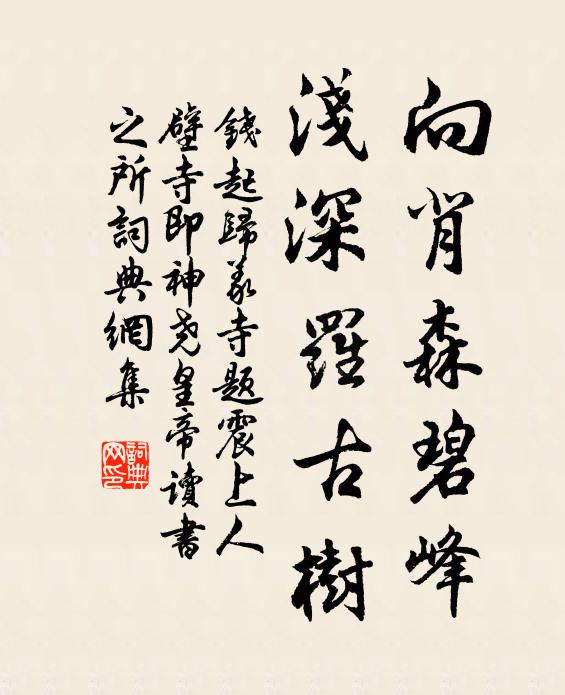 向肖森碧峰
淺深羅古樹
錢起歸義寺題震上人
壁寺即神堯皇帝讀書
之所詞典網集
詞典網印